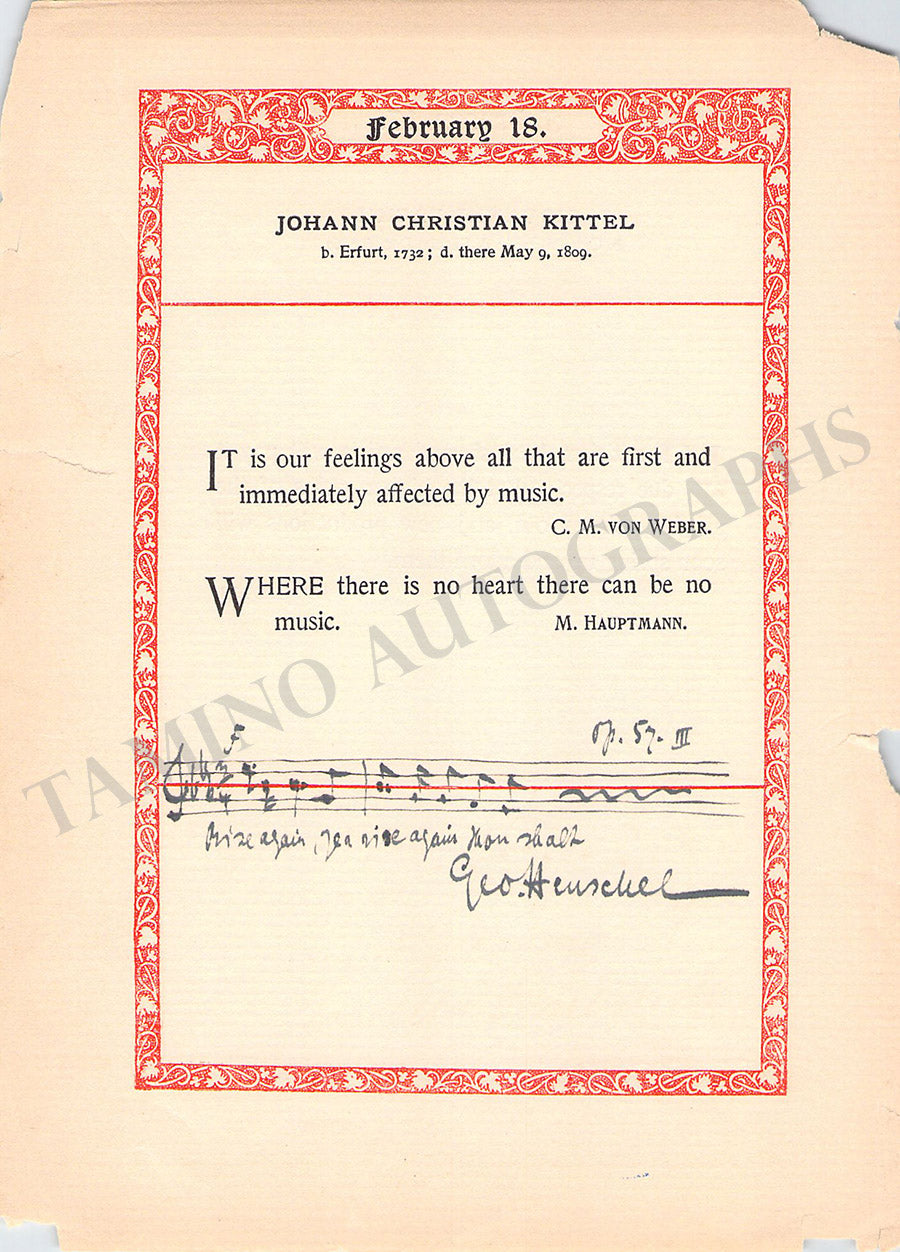 February 18.
JOHANN CHRISTIAN KITTEL
b. Erfurt, 1732; d. there May 9, 1809.
IT is our feelings above all that are first and
immediately affected by music.
C. M. VON WEBER.
WHERE there is no heart there can be no
music. M. HAUPTMANN.
F op. 57. III
Arise again, yea rise again thou shalt
Geo. Henschel
TAMINO AUTOGRAPHS